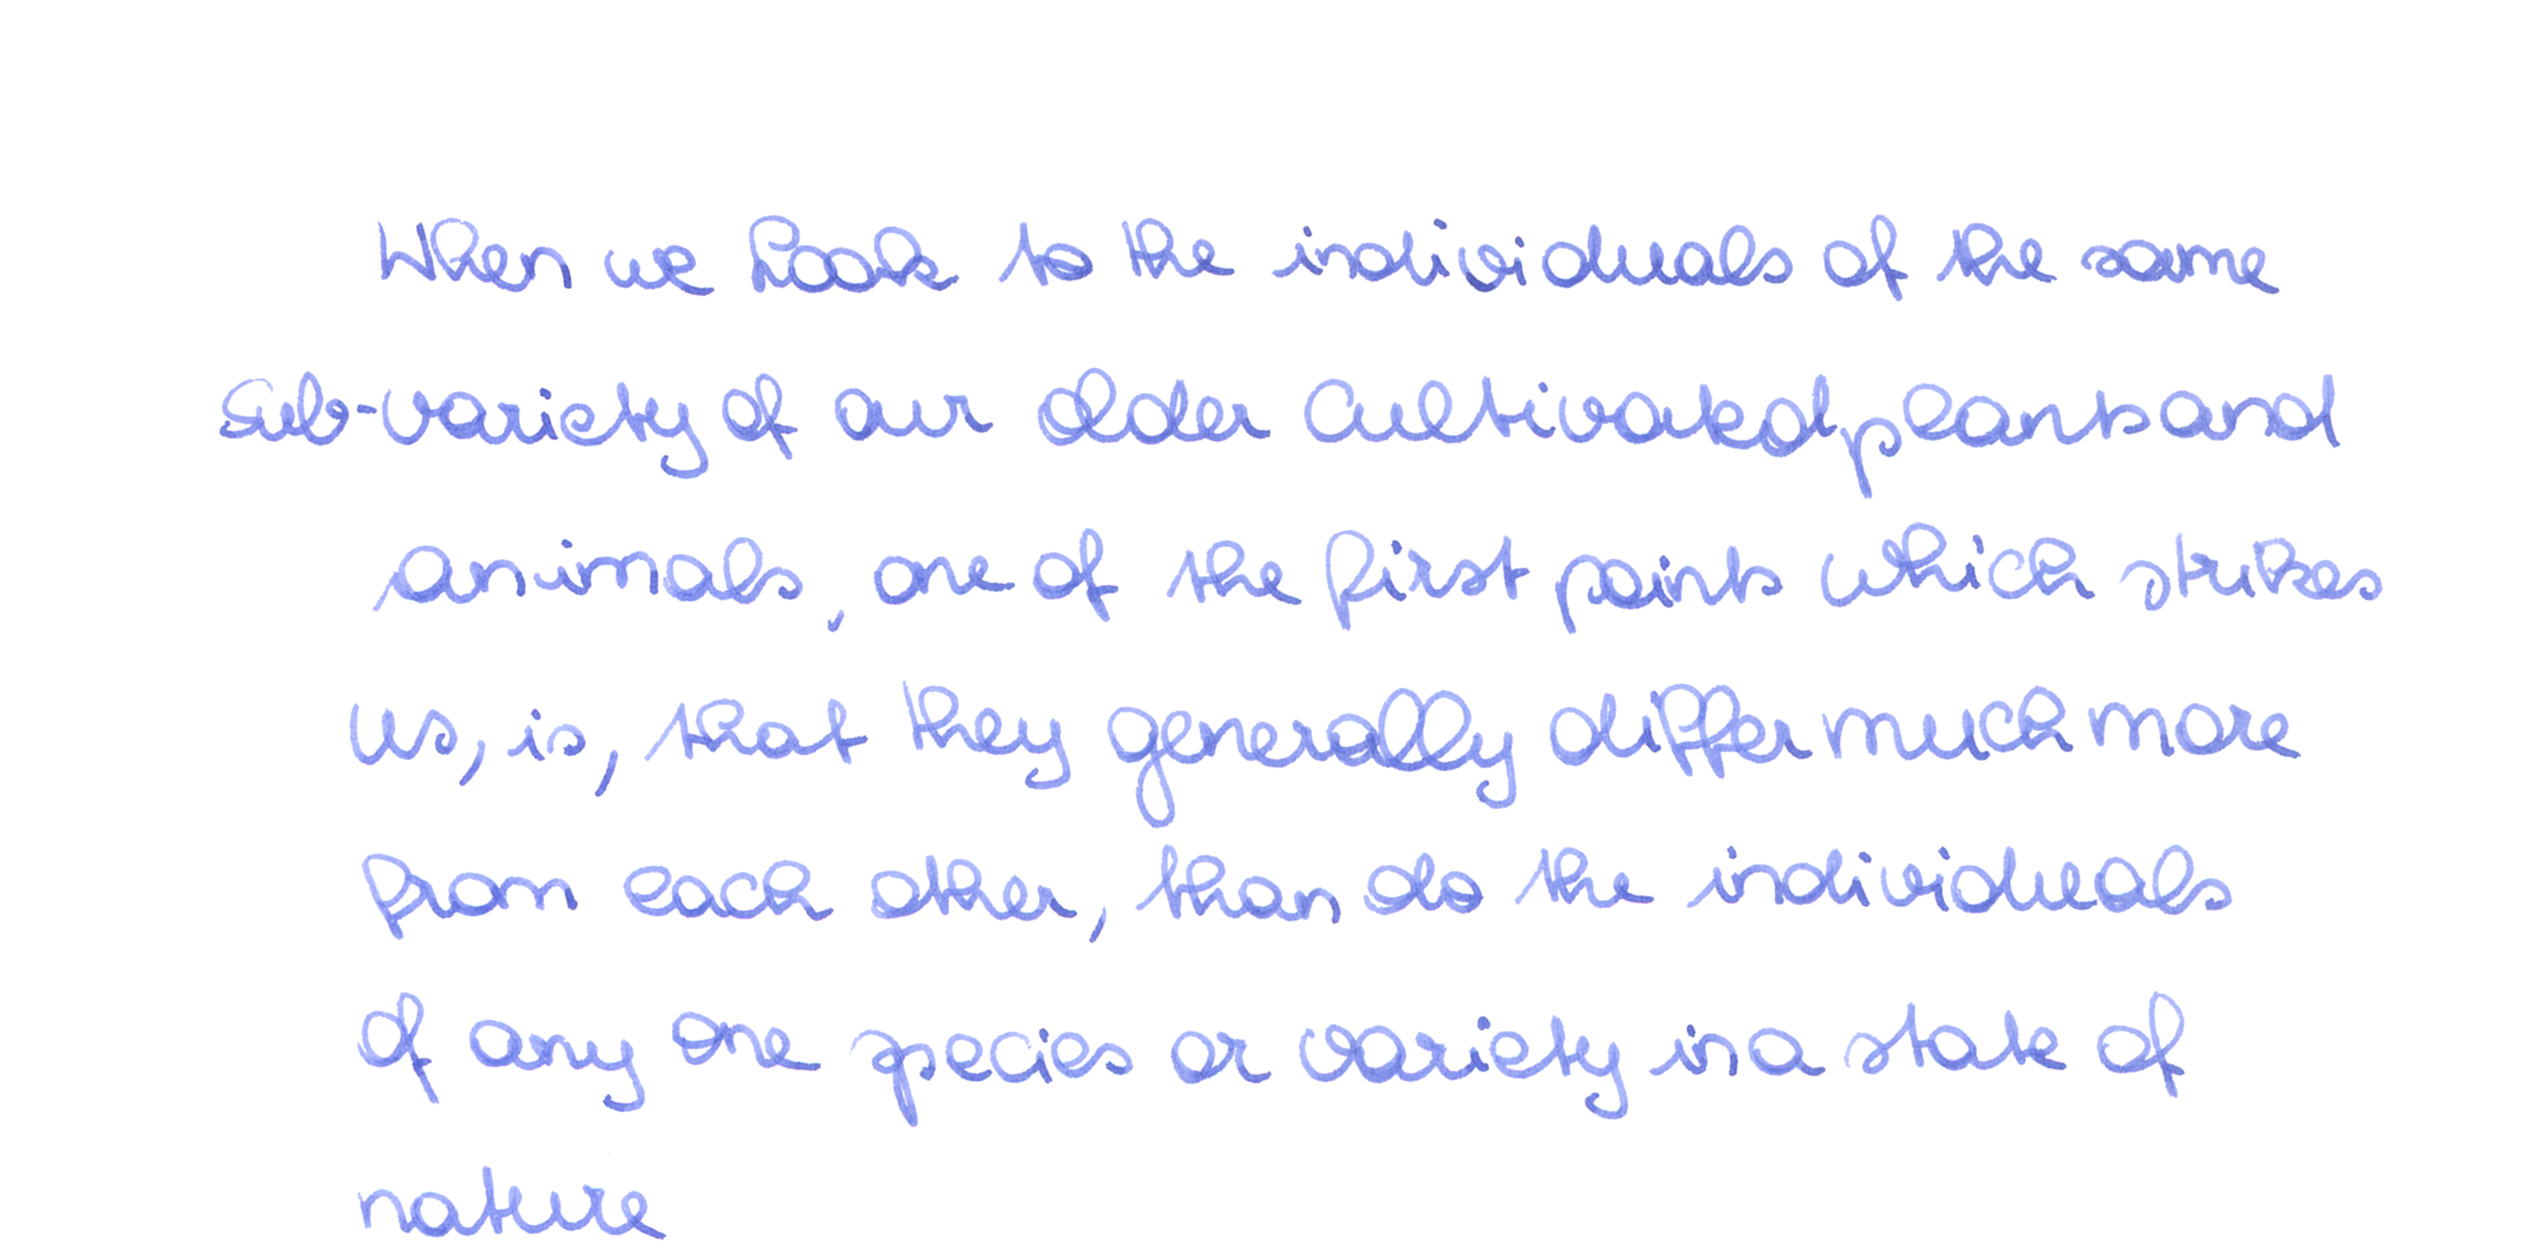 When we look to the individuals of the same
sub-variety of our older cultivated plants and
animals, one of the first points which strikes
us, is, that they generally differ much more
from each other, than do the individuals
of any one species or variety in a state of
nature